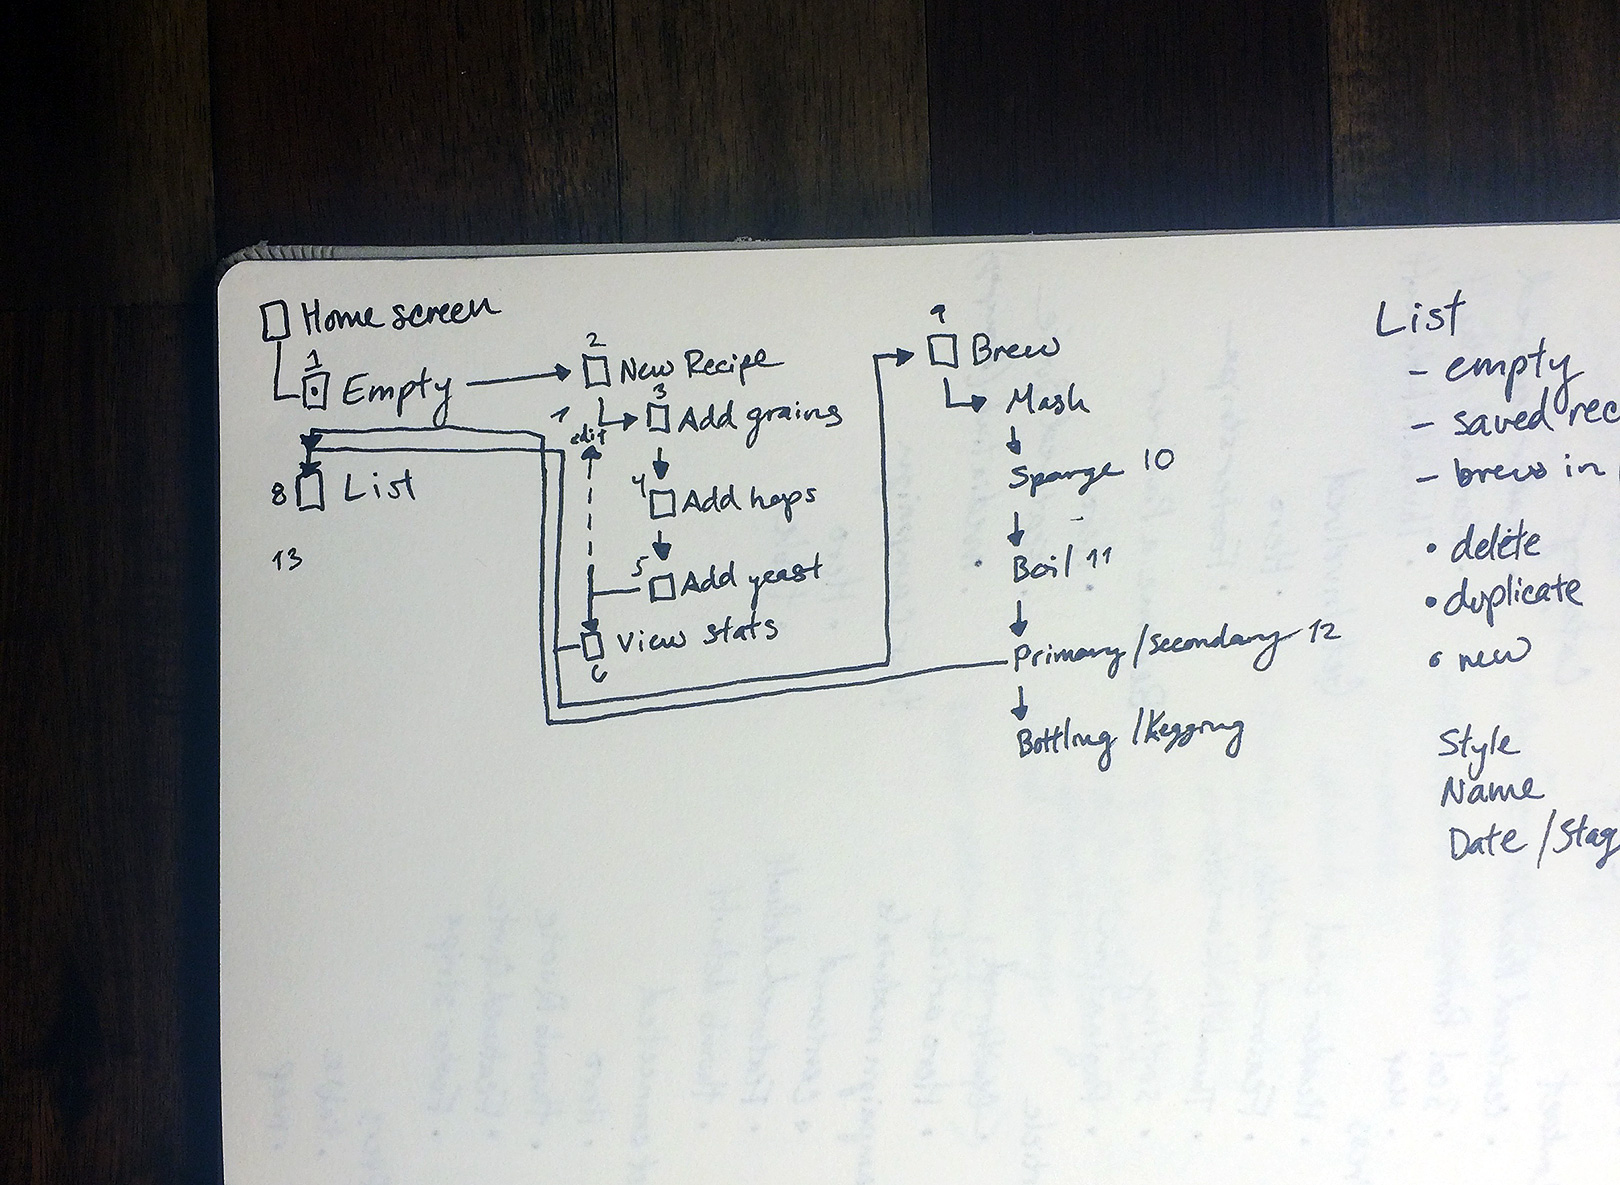 Home screen
1
Empty
8 List
13
2
New Recipe
3
Add grains
edit
4
Add hops
5
Add yeast
View stats
6
9
Brew
Mash
Sparge 10
Boil 11
Primary/Secondary 12
Bottling/Kegging
List
- empty
- saved rec
- brew in
• delete
• duplicate
• new
Style
Name
Date/Stag